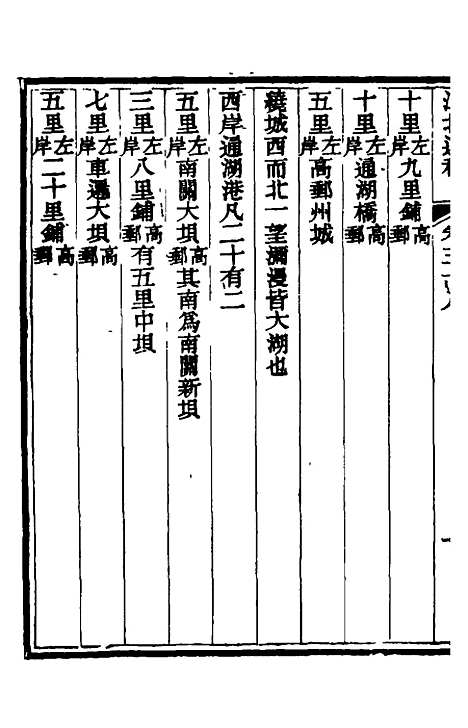 十里左岸九里鋪高郵
十里左岸通湖橋高郵
五里左岸高郵州城
繞城西而北一望瀰漫皆大湖也
西岸通湖港凡二十有二
五里左岸南關大垻高郵其南為南關新垻
三里左岸八里鋪高郵有五里中垻
七里左岸車邏大垻高郵
五里左岸二十里鋪高郵